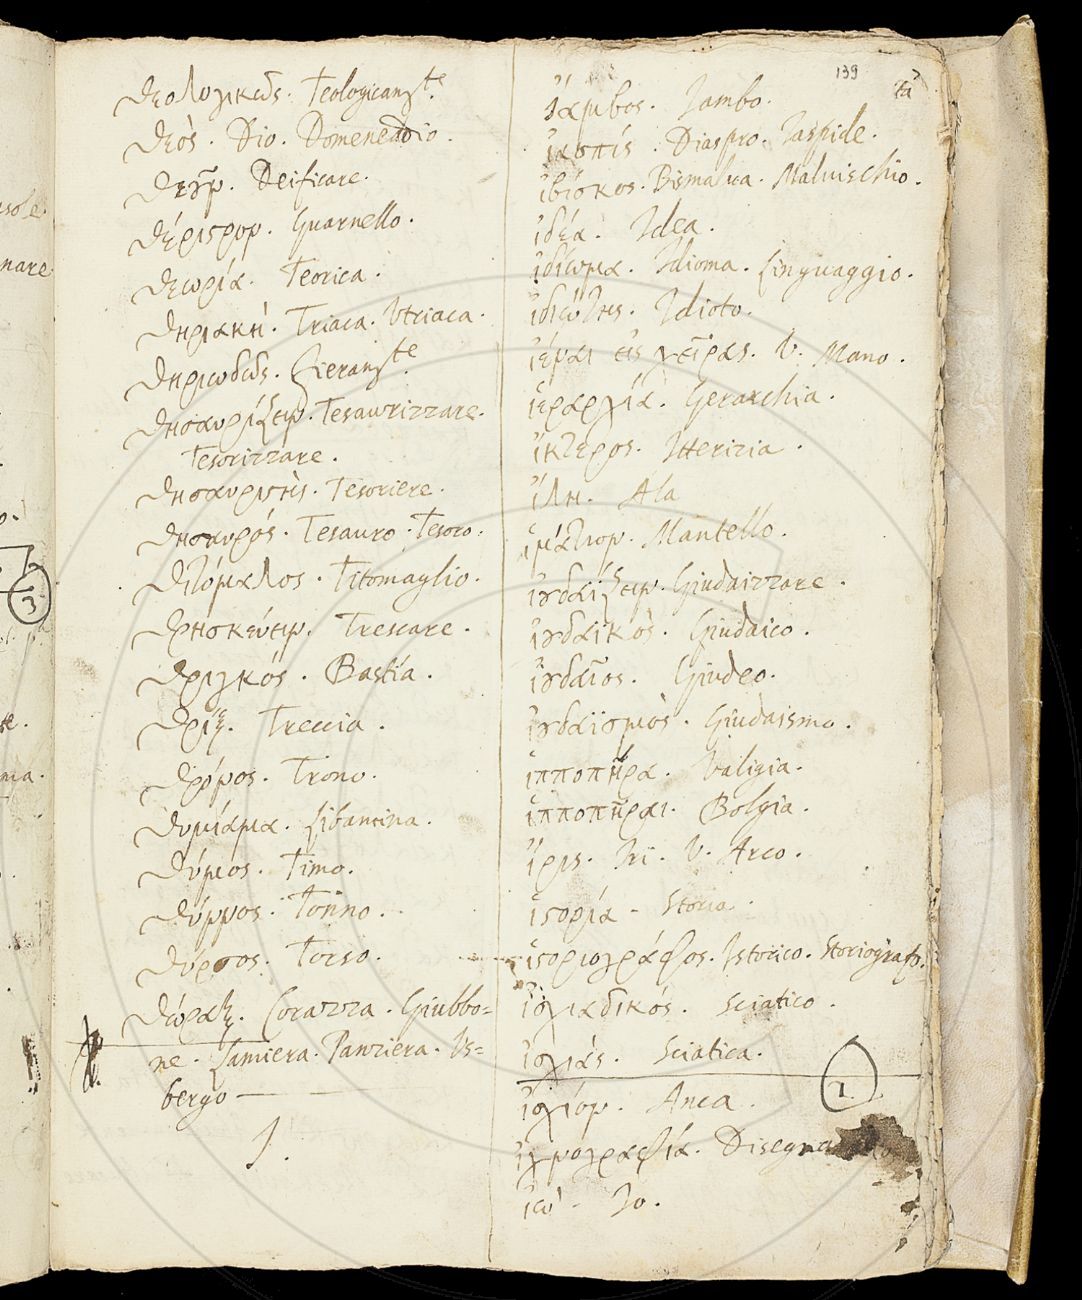 θεολογικῶς. Teologicam.te
θεὸς. Dio. Domenedio.
θεῦν. Deificare.
θέριστρον. Guarnello.
θεωρία. Teorica.
θηριακή. Triaca. Utriaca.
θηριωδῶς. Fieram.te
θησαυρίζειν. Tesaurizzare.
Tesorizzare.
θησαυριστὴς. Tesoriere.
θησαυρός. Tesauro. Tesoro.
θιτύμαλος. Titomaglio.
θρησκεύειν. Trescare.
θριγκός. Bastía.
θρίξ. Treccia.
θρόνος. Trono.
θυμίαμα. Libantina.
θύμος. Timo.
θύννος. Tonno.
θύρσος. Torso.
θώραξ. Corazza. Giubbo=
ne. Lamiera. Panziera. Us=
bergo
1.
139
ἴαμβος. Jambo.
ἰασπίς. Diaspro. Jaspide.
ἰβίσκος. Bismalva. Malvischio.
ἰδέα. Idea.
ἰδίωμα. Idioma. Linguaggio.
ἰδιώτης. Idioto.
ἰέναι εἰς χεῖρας. V. Mano.
ἱεραρχία. Gerarchia.
ἴκτερος. Itterizia.
ἴλη. Ala
ἱμάτιον. Mantello.
ἰουδαΐζειν. Giudaizzare.
ἰουδαϊκὸς. Giudaico.
ἰουδαῖος. Giudeo.
ἰουδαϊσμὸς. Giudaismo.
ἱπποπῆρα. Valigia.
ἱπποπῆραι. Bolgia.
ἴρις. Iri. V. Arco.
ἱστορία. Storia.
ἱστοριογράφος. Istorico. Storiografo.
ἰσχιαδικός. Sciatico.
ἰσχιάς. Sciatica.
ἰσχίον. Anca.
ἰχνογραφία.
ἰὼ. Io.
3
1